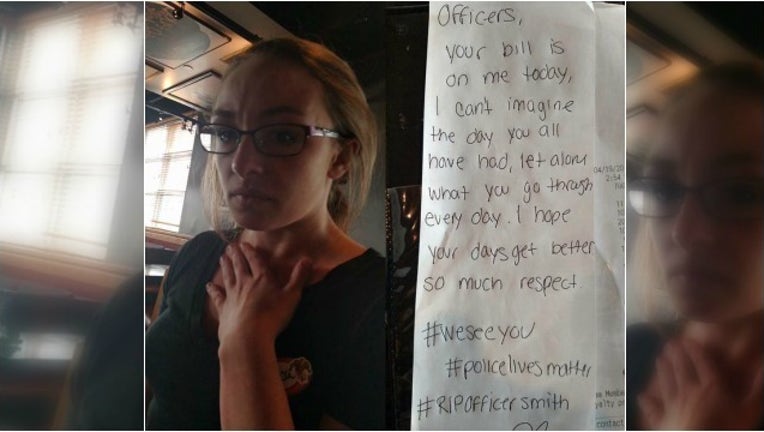 Officers,
your bill is
on me today,
I can't imagine
the day you all
have had, let alone
what you go through
every day. I hope
your days get better
so much respect.
#weseeyou
#policelivesmatter
#RIPOfficersmith
04/19/20
2:54
contact